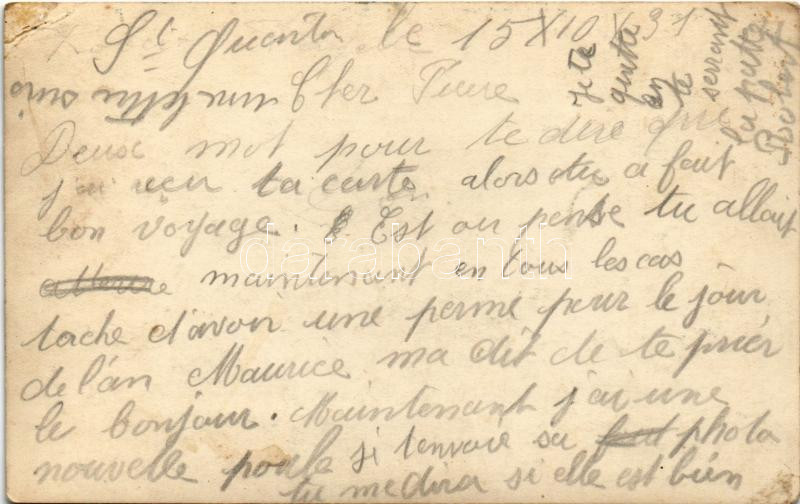 St Quentin le 15 X 10 X 31
Cher Pierre
Deux mot pour te dire que
j'ai recu ta carte alors tu a fait
bon voyage. Est ou pense tu allait
maintenant en tous les cas
tache d'avoir une perme pour le jour
de l'an Maurice ma dit de te prier
le bonjour. Maintenant j'ai une
nouvelle poule si tenvoie sa photo
tu me dira si elle est bien
je te
quitte
en te
serrant
la patte
Robert
databanth